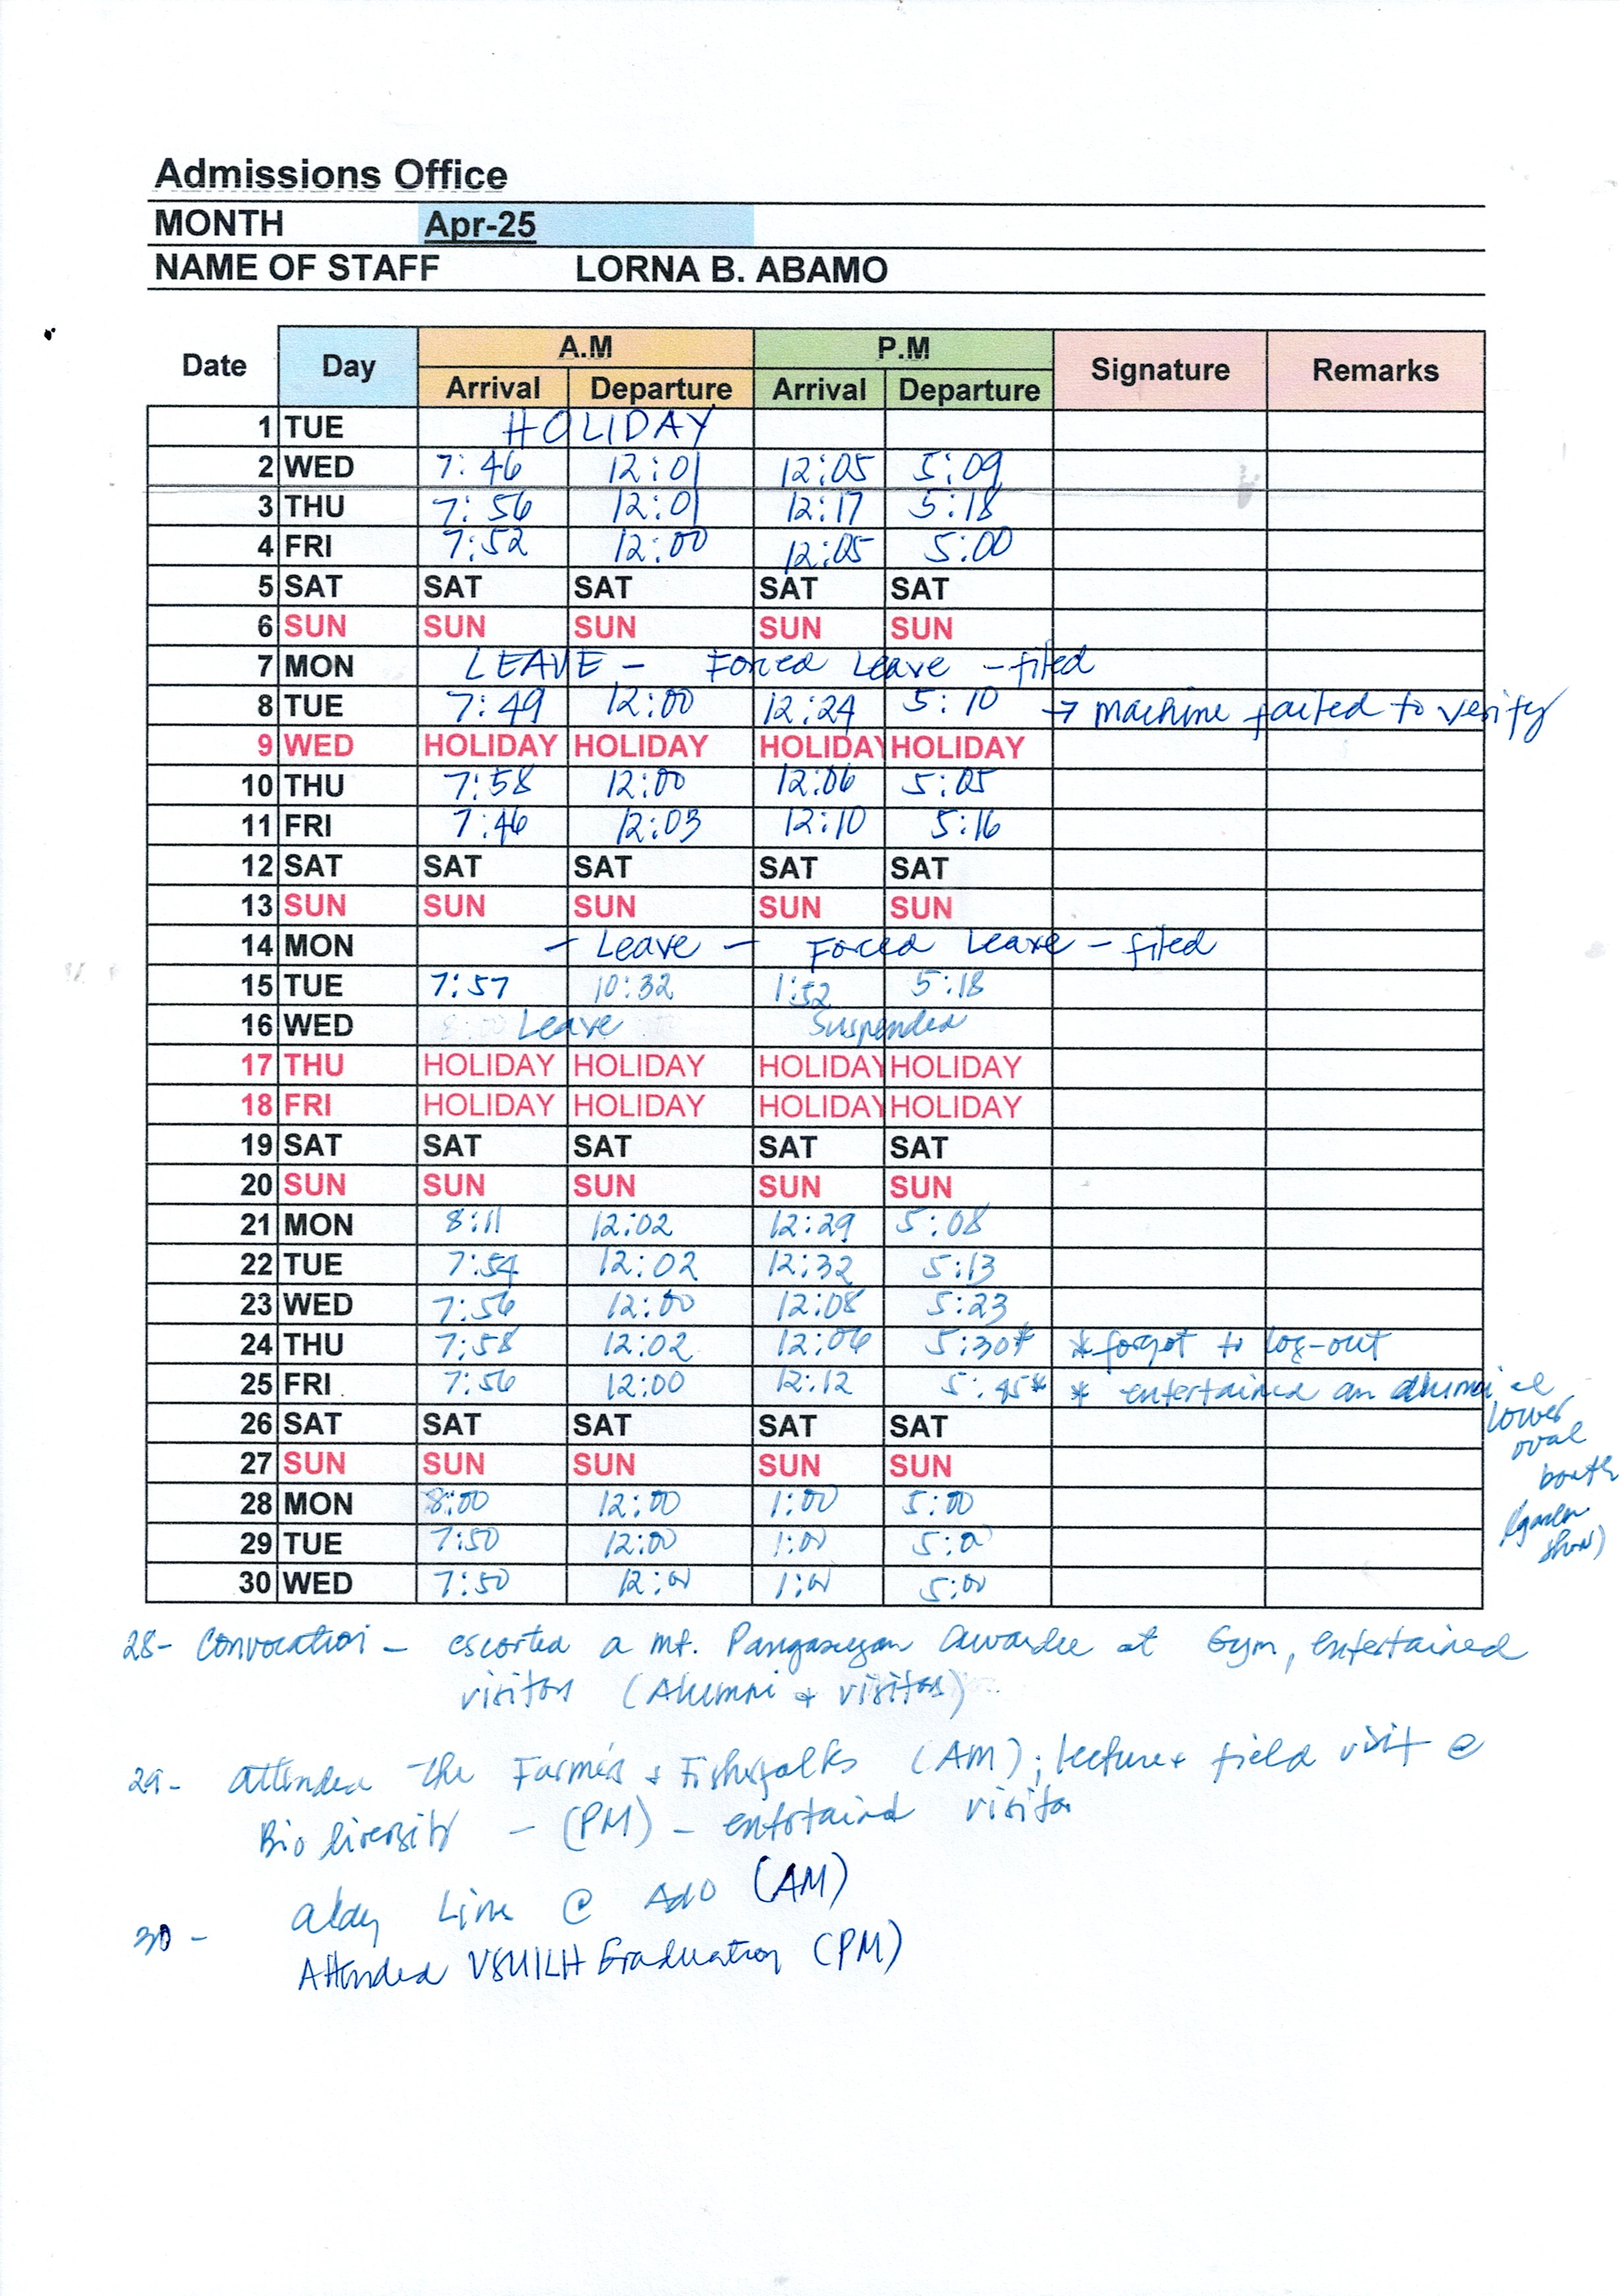 Admissions Office
MONTH Apr-25
NAME OF STAFF LORNA B. ABAMO
Date Day A.M P.M Signature Remarks
Arrival Departure Arrival Departure
1 TUE HOLIDAY
2 WED 7:46 12:01 12:05 5:09
3 THU 7:56 12:01 12:17 5:18
4 FRI 7:52 12:00 12:05 5:00
5 SAT SAT SAT SAT SAT
6 SUN SUN SUN SUN SUN
7 MON LEAVE - Forced Leave - filed
8 TUE 7:49 12:00 12:24 5:10 → machine failed to verify
9 WED HOLIDAY HOLIDAY HOLIDAY HOLIDAY
10 THU 7:58 12:00 12:06 5:05
11 FRI 7:46 12:03 12:10 5:16
12 SAT SAT SAT SAT SAT
13 SUN SUN SUN SUN SUN
14 MON - Leave - Forced Leave - filed
15 TUE 7:57 10:32 1:52 5:18
16 WED Leave Suspended
17 THU HOLIDAY HOLIDAY HOLIDAY HOLIDAY
18 FRI HOLIDAY HOLIDAY HOLIDAY HOLIDAY
19 SAT SAT SAT SAT SAT
20 SUN SUN SUN SUN SUN
21 MON 8:11 12:02 12:29 5:08
22 TUE 7:54 12:02 12:32 5:13
23 WED 7:56 12:00 12:08 5:23
24 THU 7:58 12:02 12:06 5:30* * forgot to log-out
25 FRI 7:56 12:00 12:12 5:45* * entertained an alumni
lower
oval
booth
(garden
show)
26 SAT SAT SAT SAT SAT
27 SUN SUN SUN SUN SUN
28 MON 8:00 12:00 1:00 5:00
29 TUE 7:50 12:00 1:00 5:00
30 WED 7:50 12:00 1:00 5:00
28- Convocation - escorted a Mt. Pangasugan Awardee at Gym, entertained
visitors (Alumni & visitors)
29- attended the Farmers & Fisherfolks (AM); lecture & field visit @
Biodiversity - (PM) - entertained visitor
Line @ AdO (AM)
30 -
Attended Graduation (PM)